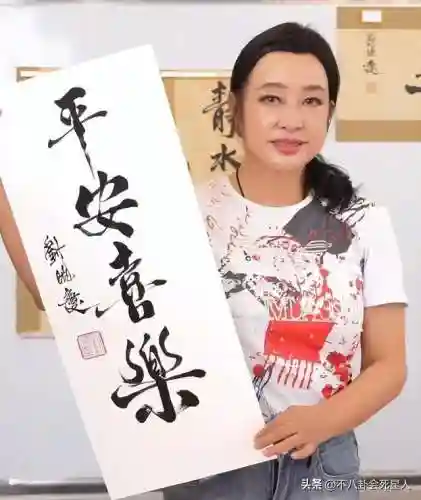 平安喜樂
劉曉慶
靜水
头条 @不八卦会死星人